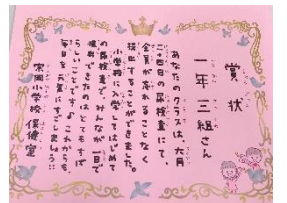 賞状
一年三組さん
あなたのクラスは、六月
二十四日の尿検査にて、
全員が忘れることなく
提出することができました。
小学校に入学してはじめて
の尿検査で、みんなが一日で
提出できたのはとてもすば
らしいことですよ。これからも、
毎日を元気にすごしましょう！
小学校保健室